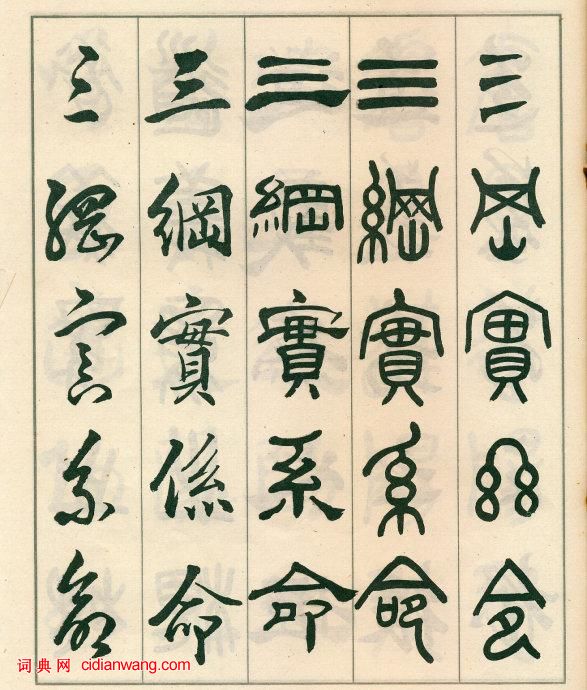 三岡實系命
三綱實系命
三綱實系命
三綱實係命
三綱實系命
词典网 cidianwang.com